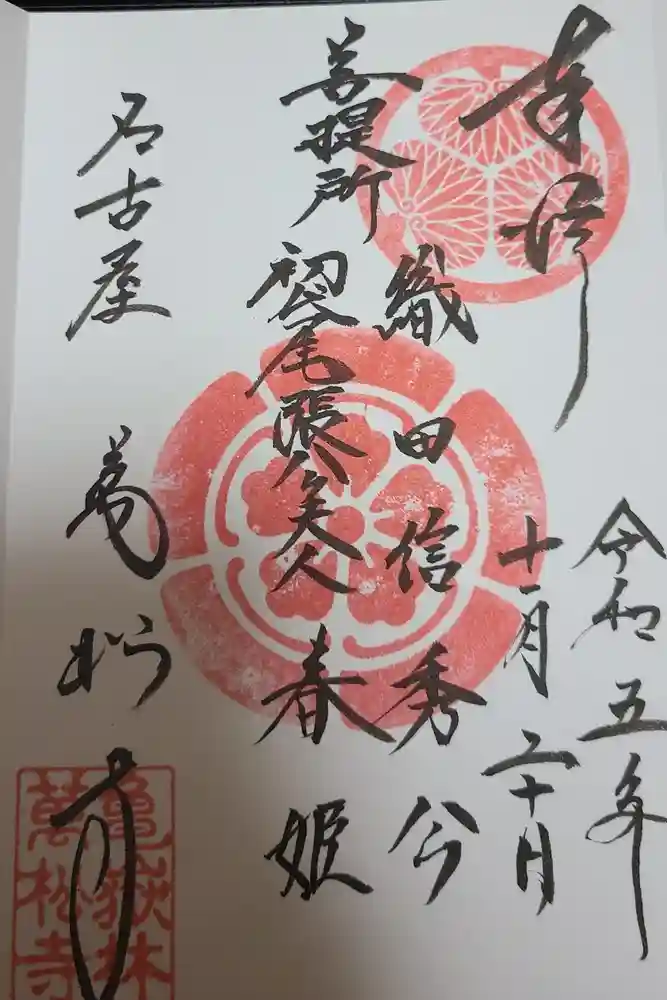 奉拝
令和五年
十一月二十日
織田信秀公
菩提所
初代尾張公夫人 春姫
名古屋 萬松寺
亀嶽林
萬松寺